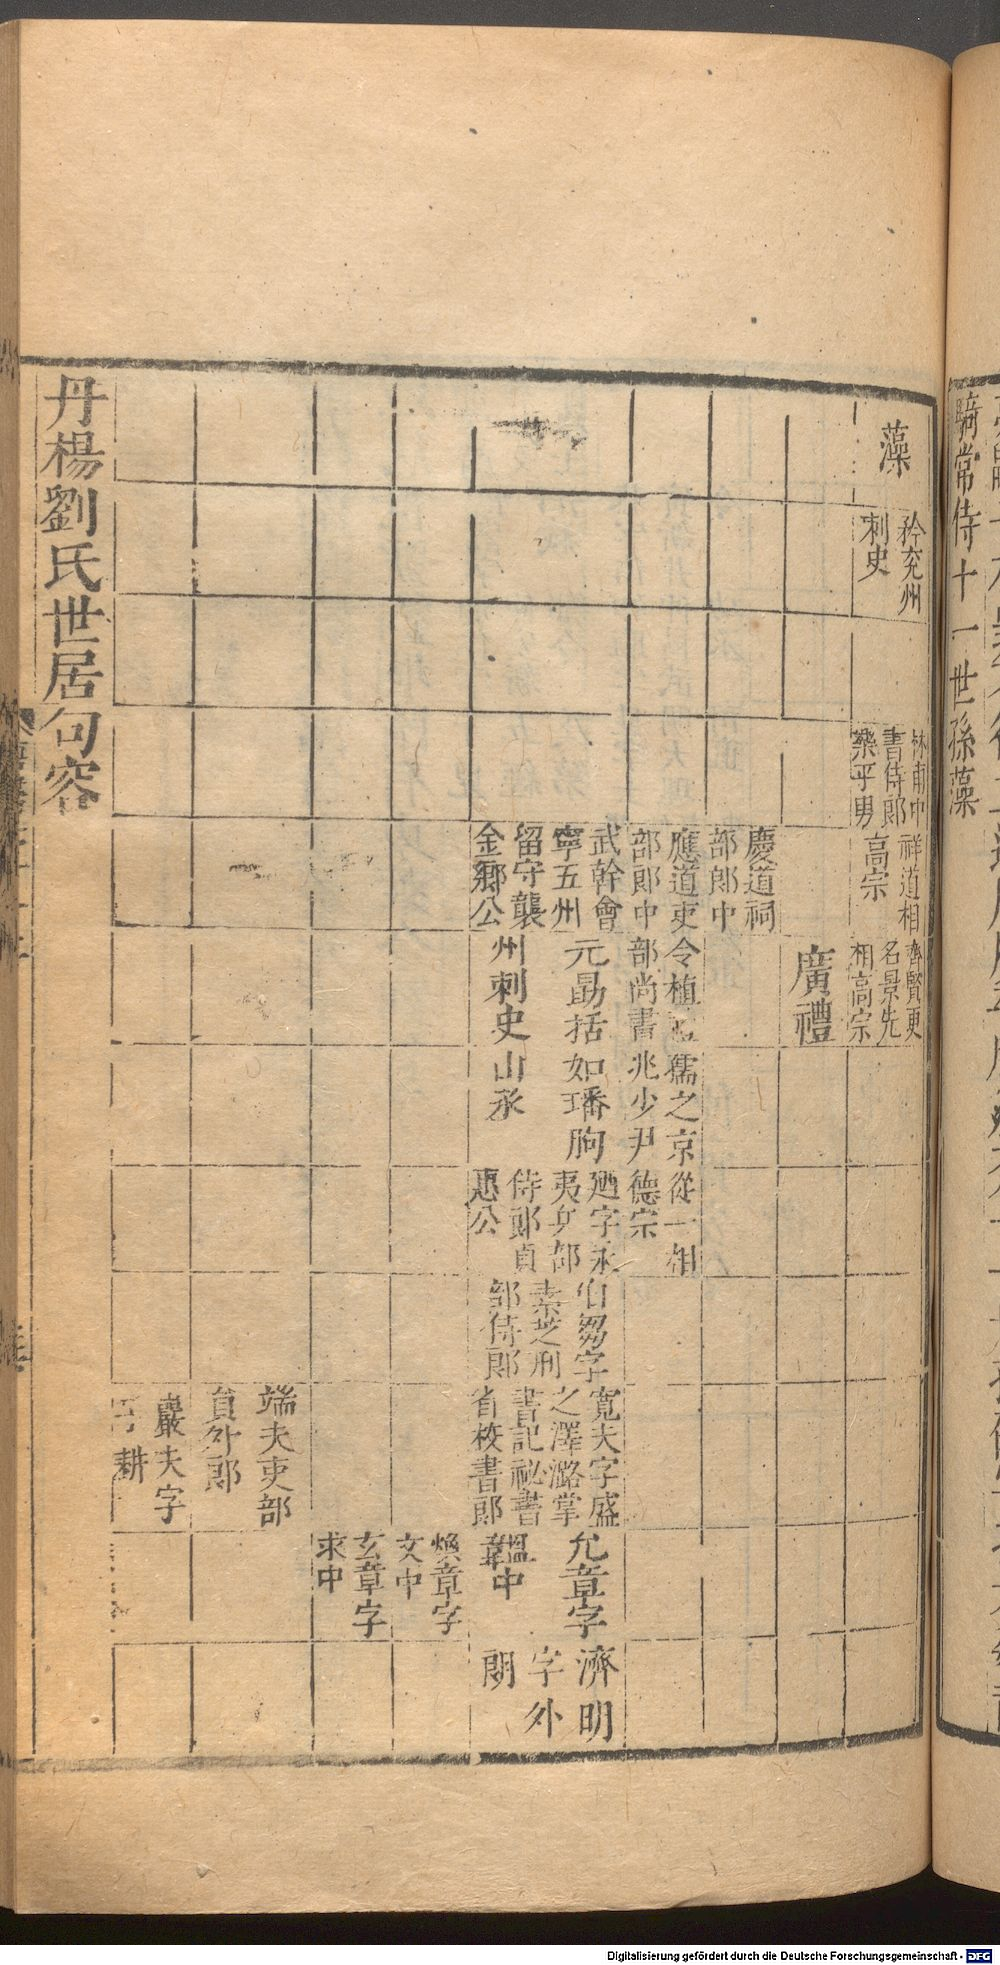 騎常侍十一世孫藻
藻
矜兖州
刺史
林甫中
書侍郎
樂平男
祥道相
高宗
齊賢更
名景先
相高宗
廣禮
慶道祠
部郎中
應道吏
部郎中
令植禮
部尚書
孺之京
兆少尹
從一相
德宗
武幹會
寧五州
留守襲
金鄉公
元勗括
州刺史
如璠朐
山丞
迺字永
夷兵部
侍郎貞
惠公
伯芻字
素芝刑
部侍郎
寬夫字盛
之澤潞掌
書記祕書
省校書郎
允章字
韞中
濟明
字外
朗
煥章字
文中
玄章字
求中
端夫吏部
員外郎
巖夫字
子耕
丹楊劉氏世居句容
Digitalisierung gefördert durch die Deutsche Forschungsgemeinschaft - DFG